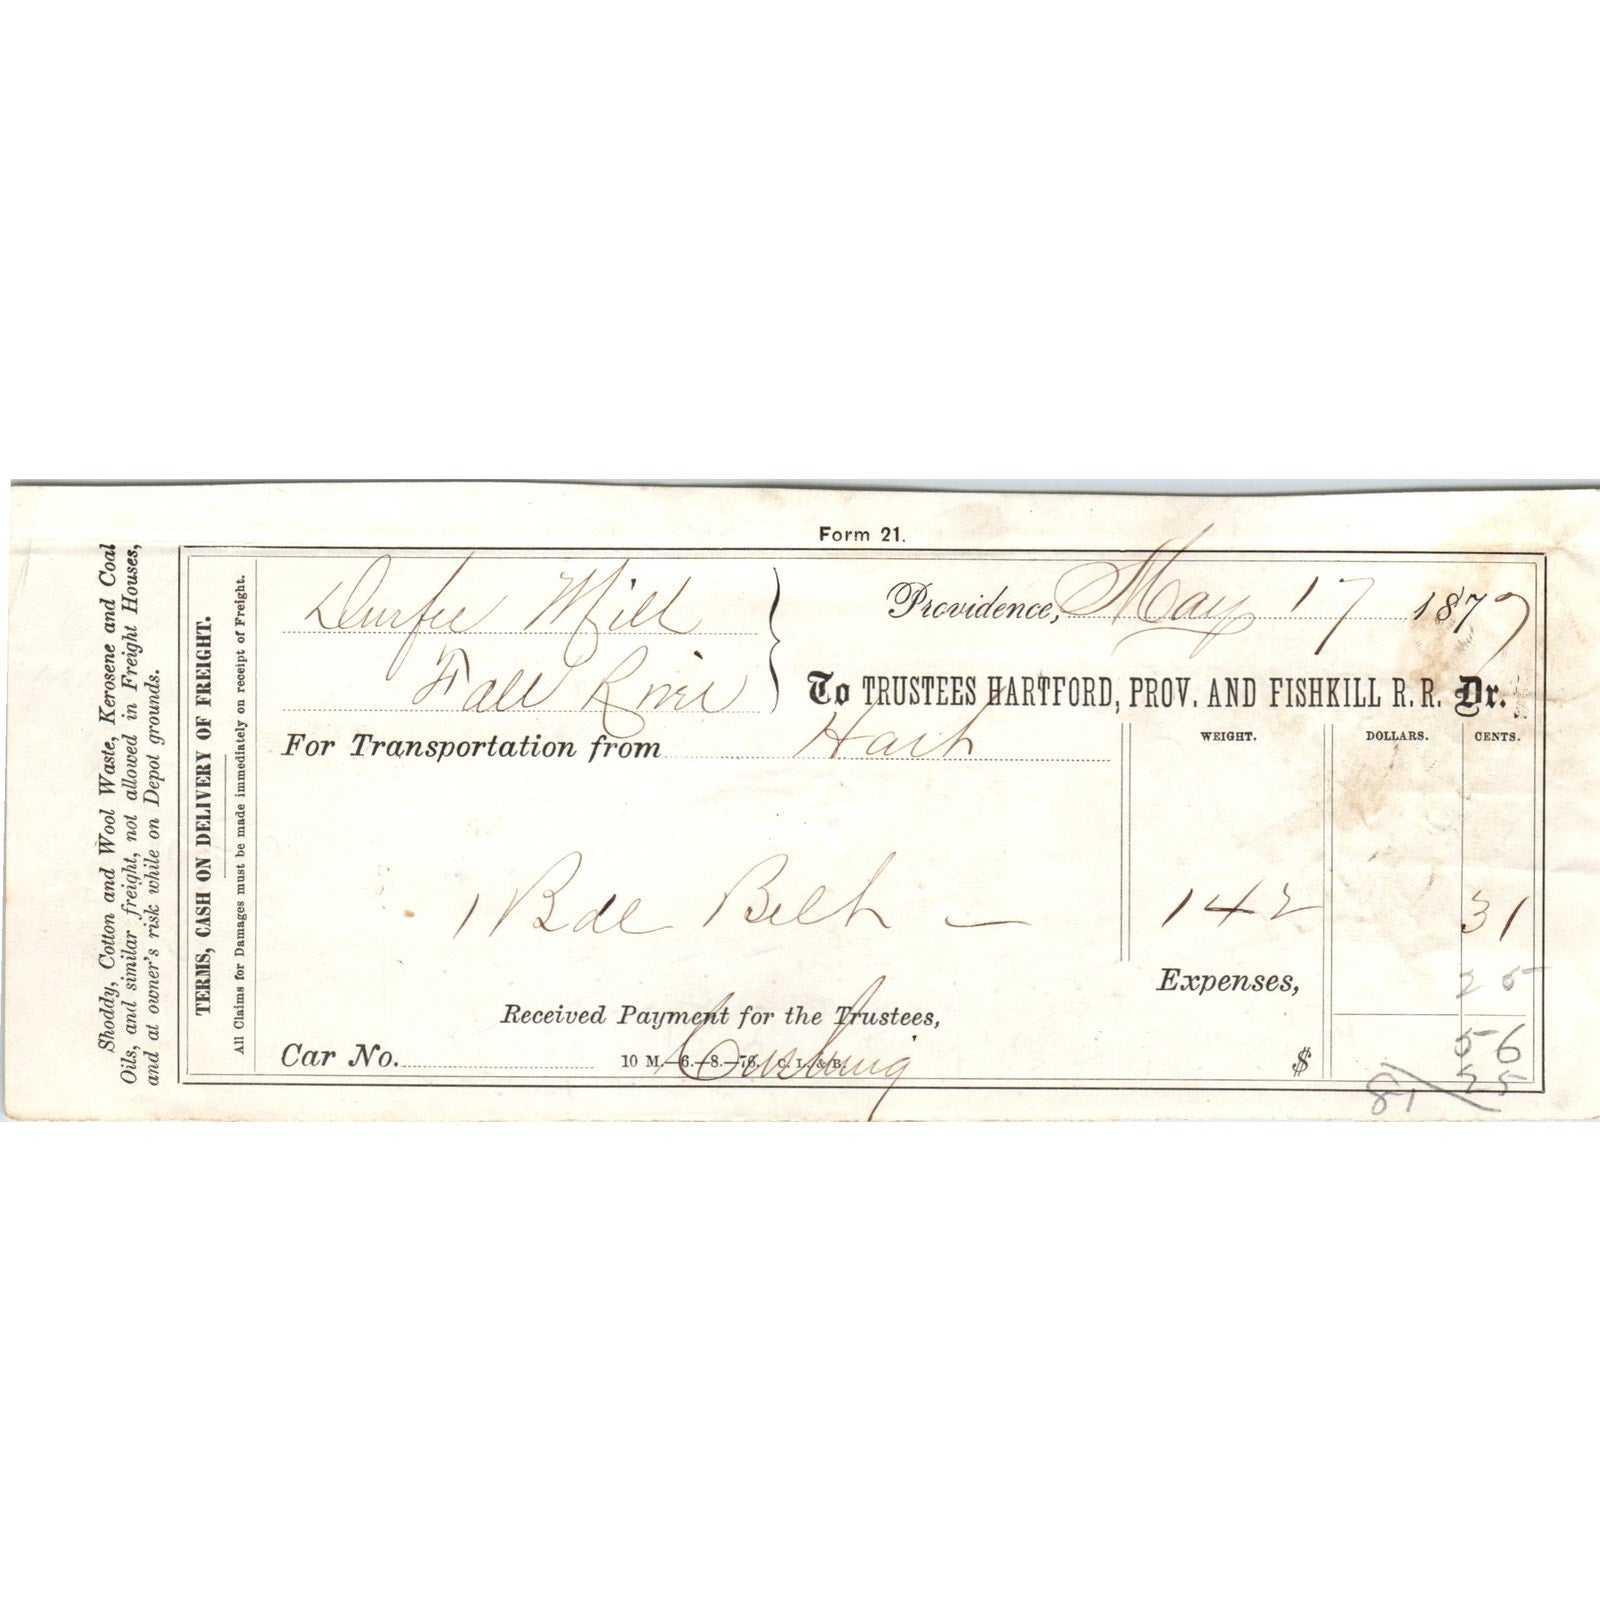 Form 21.
Durfee Mill
Providence, May 17 1877
Fall River
To TRUSTEES HARTFORD, PROV. AND FISHKILL R. R. Dr.
For Transportation from Hart
WEIGHT. DOLLARS. CENTS.
1 Bdl Belt — 142 31
Expenses, 25
Received Payment for the Trustees,
56
Car No. 10 M.—6.—8.—76. C. L. & B. $
Cushing
25
81
TERMS, CASH ON DELIVERY OF FREIGHT.
All Claims for Damages must be made immediately on receipt of Freight.
Shoddy, Cotton and Wool Waste, Kerosene and Coal
Oils, and similar freight, not allowed in Freight Houses,
and at owner's risk while on Depot grounds.